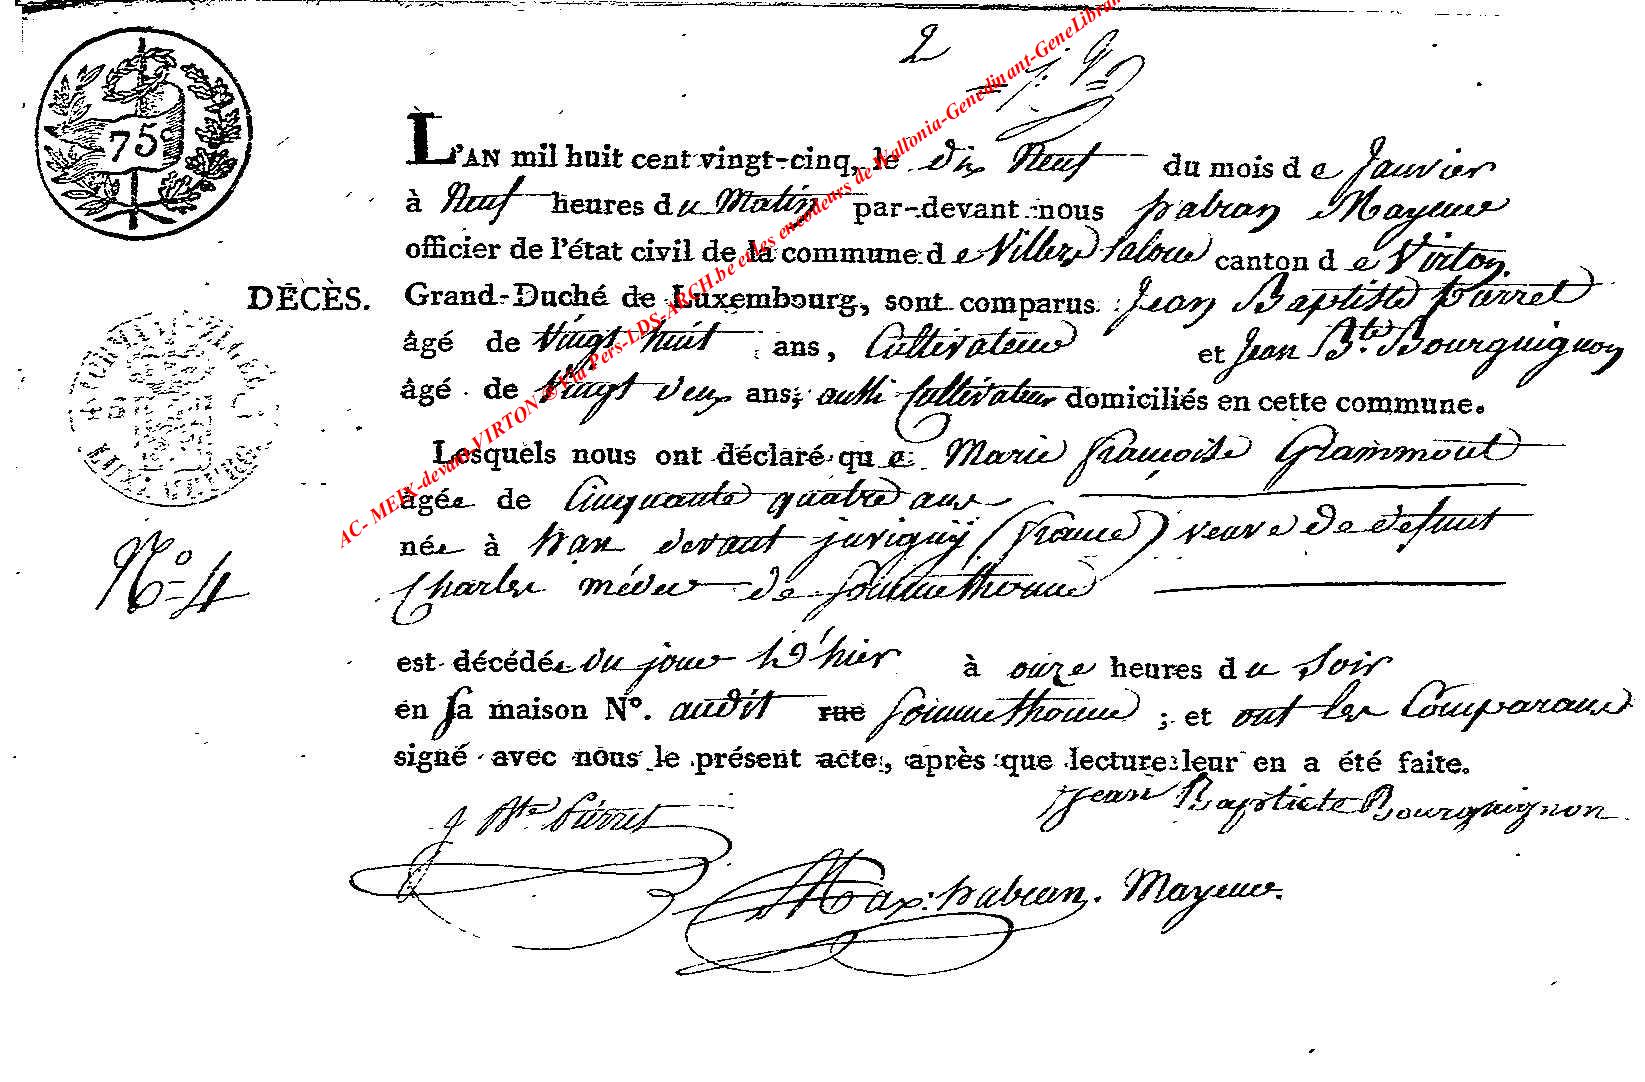 2
75c
L'AN mil huit cent vingt-cinq, le dix Neuf du mois de Janvier
à Neuf heures du Matin par-devant nous habran Mayeur
officier de l'état civil de la commune de Villers laloue canton de Virton.
DÉCÈS. Grand-Duché de Luxembourg, sont comparus Jean Baptiste pierret
âgé de Vingt huit ans, Cultivateur et Jean Bte Bourguignon
âgé de Vingt deux ans, aussi Cultivateur domiciliés en cette commune.
Lesquels nous ont déclaré que Marie françoise Grammont
âgée de Cinquante quatre ans
née à han devant juvigny (france) veuve de defunt
N° 4 Charles méder de Sommethonne
est décédée du jour d'hier à onze heures du Soir
en sa maison N°. audit rue Sommethonne ; et ont les Comparans
signé avec nous le présent acte, après que lecture leur en a été faite.
Jean Baptiste Bourguignon
J Bte Pierret
Max: habran. Mayeur.
AC- MEIX-devant-VIRTON @ via Pers-LDS-ARCH.be et les encodeurs de Wallonia-Genedinant-GeneLibran